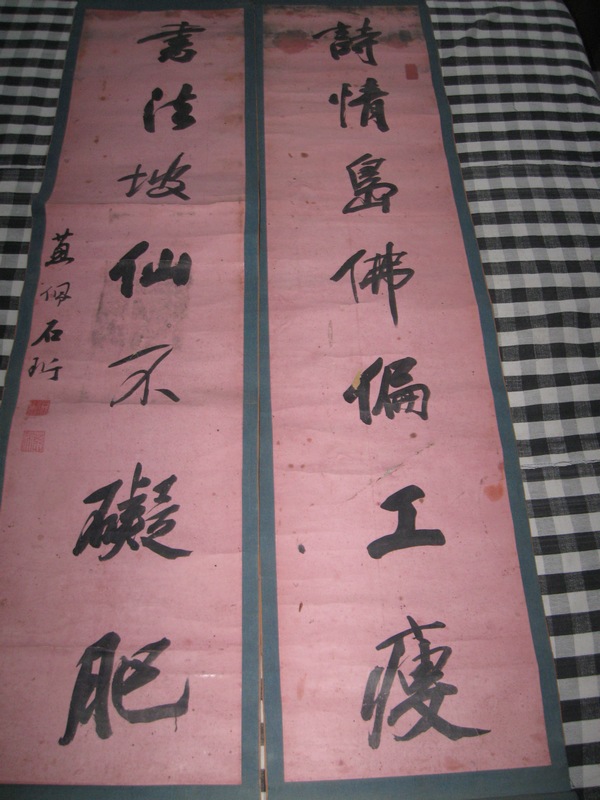 詩情島佛偏工瘦
書法坡仙不礙肥
石珩